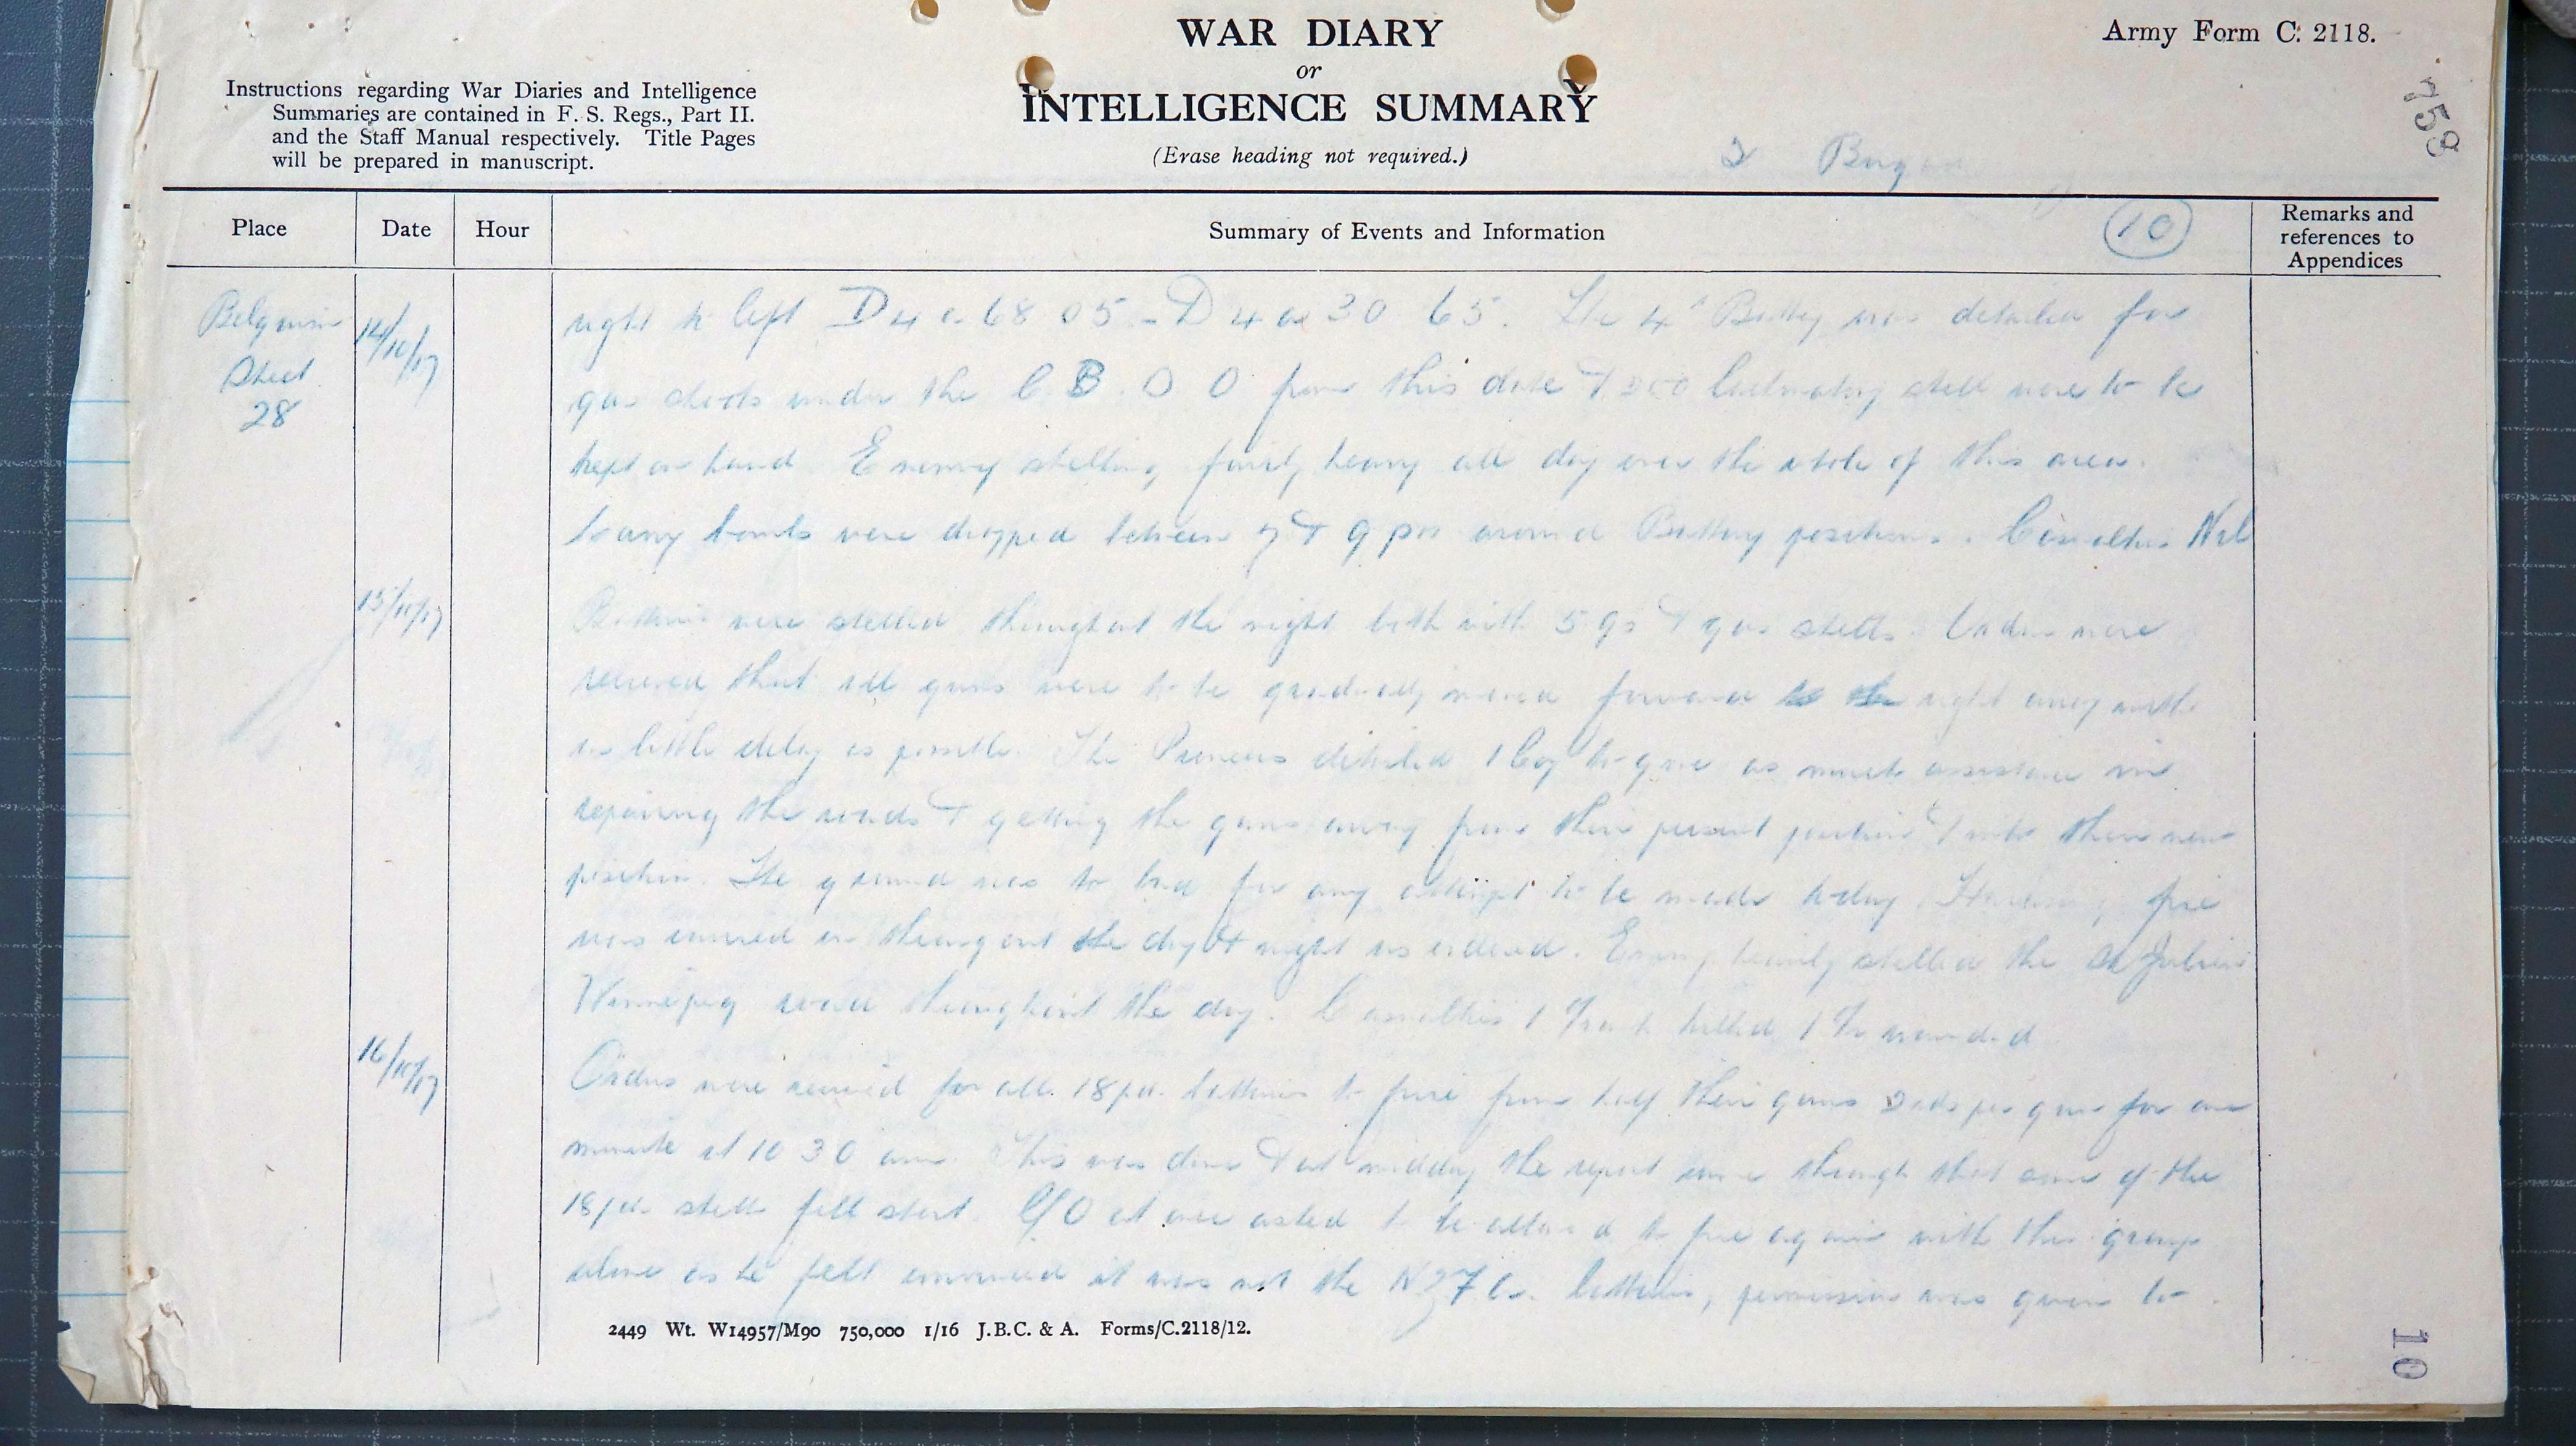 WAR DIARY
or
INTELLIGENCE SUMMARY
(Erase heading not required.)
Army Form C. 2118.
Instructions regarding War Diaries and Intelligence
Summaries are contained in F. S. Regs., Part II.
and the Staff Manual respectively. Title Pages
will be prepared in manuscript.
759
2
Place
Date
Hour
Summary of Events and Information
10
Remarks and
references to
Appendices
Belgium
Sheet
28
14/10/17
right to left D 4 c 68 05 - D 4 a 30 65. The 4th Battery was detailed for
gas shoots under the C B. O O from this date & 200 Lachrymatory shell were to be
kept on hand Enemy shelling fairly heavy all day over the whole of this area.
Many bombs were dropped between 7 & 9 pm around Battery positions. Casualties Nil
15/10/17
Batteries were shelled throughout the night both with 5 9s & gas shells. Orders were
received that all guns were to be gradually moved forward right away with
as little delay as possible. The Pioneers detailed 1 Coy to give as much assistance in
repairing the roads & getting the guns away from their present position & into their new
position. The ground was to bad for any attempt to be made to-day. Harassing fire
was carried on throughout the day & night as ordered. Enemy heavily shelled the St Julien
Winnipeg road throughout the day. Casualties 1 killed 1 wounded
16/10/17
Orders were received for all 18 pdr batteries to fire from half their guns 2 rds per gun for one
minute at 10 30 am. This was done & at midday the report came through that some of the
18 pdr shell fell short. C/O at once asked to be allowed to fire again with this group
alone as he felt convinced it was not the batteries, permission was given to
2449 Wt. W14957/M90 750,000 1/16 J.B.C. & A. Forms/C.2118/12.
10